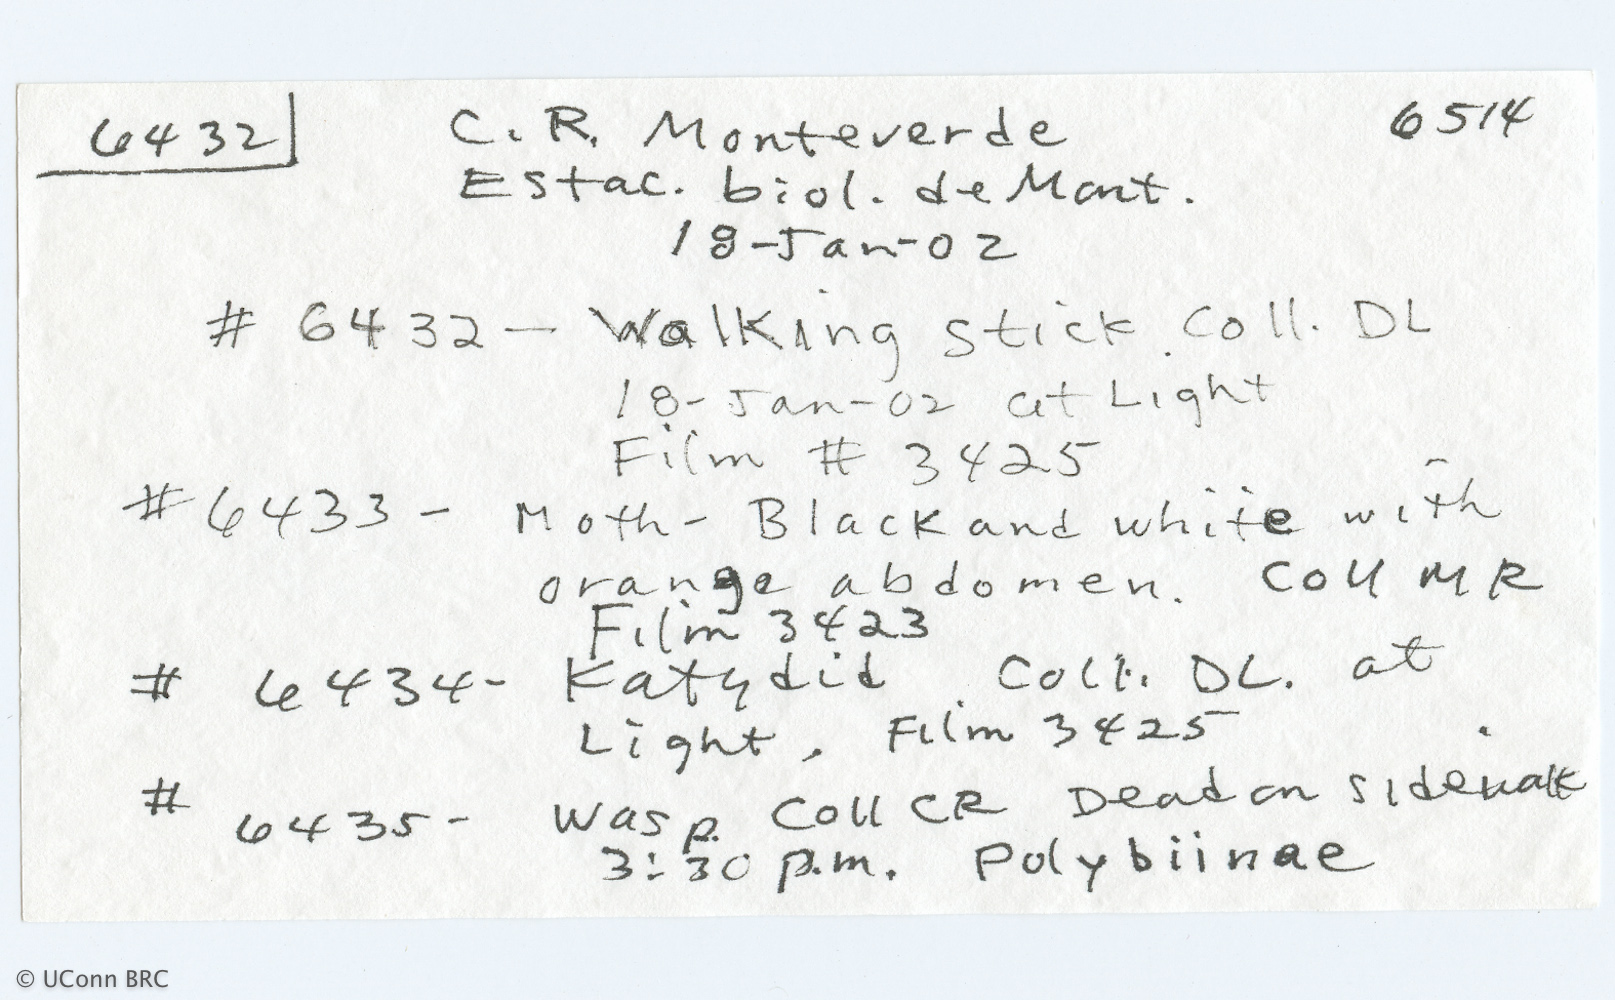 6432 C. R. Monteverde 6514
Estac. biol. de Mont.
18-Jan-02
# 6432 - Walking stick. Coll. DL
18-Jan-02 at Light
Film # 3425
# 6433 - Moth - Black and white with
orange abdomen. Coll MR
Film 3423
# 6434 - Katydid Coll. DL. at
Light, Film 3425
# 6435 - Wasp. Coll CR Dead on sidewalk
3:30 p.m. Polybiinae
© UConn BRC